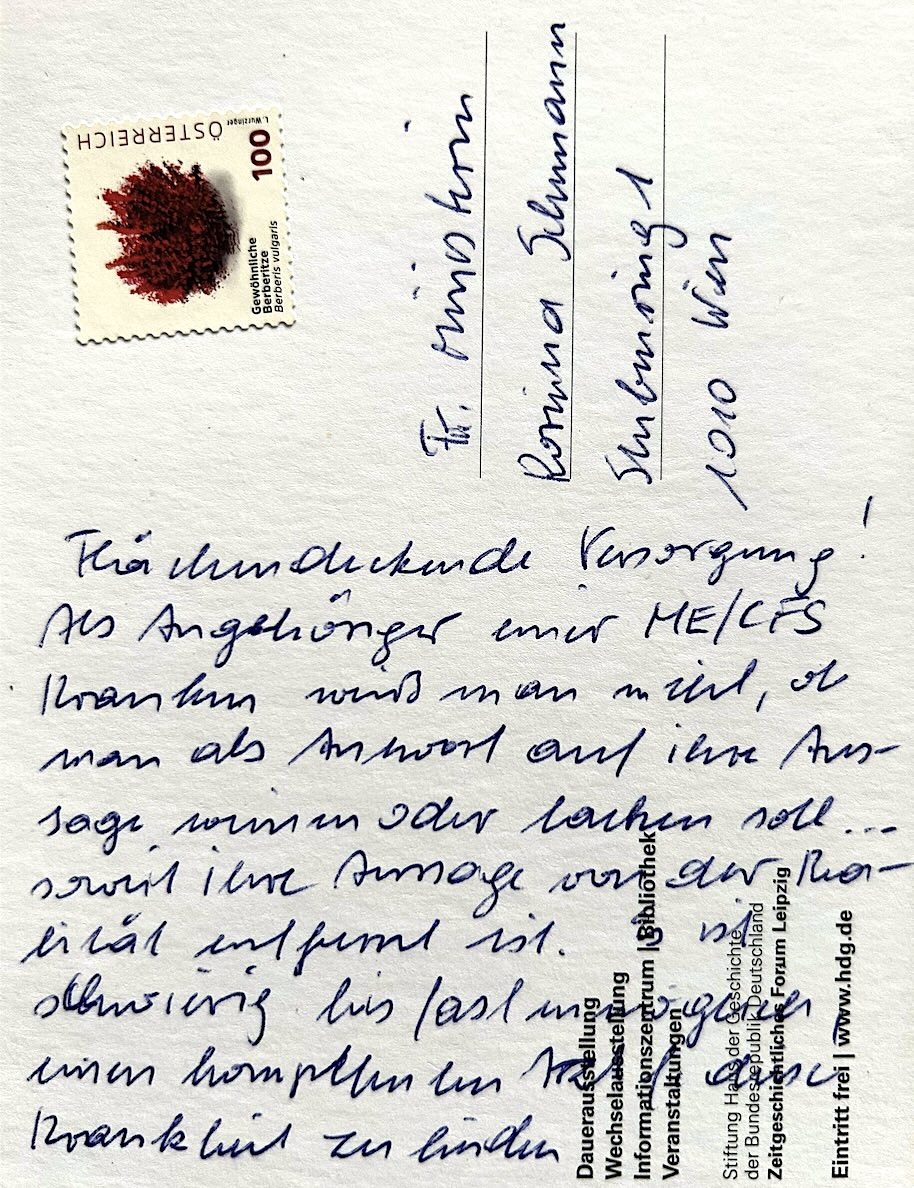 ÖSTERREICH
I. Wurzinger
100
Gewöhnliche
Berberitze
Berberis vulgaris
Fr. Ministerin
Korinna Schumann
Stubenring 1
1010 Wien
Flächendeckende Versorgung!
Als Angehöriger einer ME/CFS
Kranken weiß man nicht, ob
man als Antwort auf ihre Aus-
sage weinen oder lachen soll...
soweit ihre Aussage von der Rea-
lität entfernt ist. Es ist
schwierig bis fast unmöglich,
einen kompetenten Arzt f. diese
Krankheit zu finden
Dauerausstellung
Wechselausstellung
Informationszentrum | Bibliothek
Veranstaltungen
Stiftung Haus der Geschichte
der Bundesrepublik Deutschland
Zeitgeschichtliches Forum Leipzig
Eintritt frei | www.hdg.de